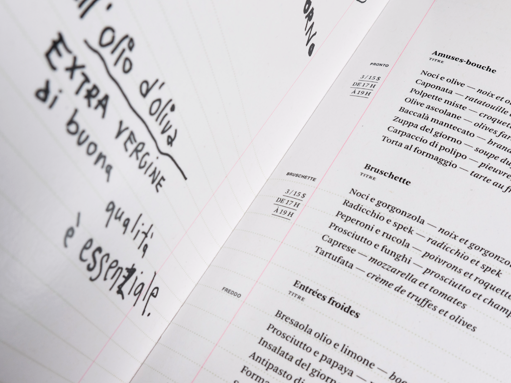 olio d'oliva
EXTRA VERGINE
di buona
qualità
è essenziale.
PRONTO
3 / 15 $
DE 17 H
À 19 H
Amuses-bouche
TITRE
Noci e olive — noix et
Caponata — ratatouille
Polpette miste —
Olive ascolane — olives
Baccalà mantecato —
Zuppa del giorno — soupe du
Carpaccio di polipo — pieuvre
Torta al formaggio — tarte au
BRUSCHETTE
3 / 15 $
DE 17 H
À 19 H
Bruschette
TITRE
Noci e gorgonzola — noix et gorgonzo
Radicchio e spek — radicchio et spek
Peperoni e rucola — poivrons et roquette
Prosciutto e funghi — prosciutto et champ
Caprese — mozzarella et tomates
Tartufata — crème de truffes et olives
FREDDO
Entrées froides
TITRE
Bresaola olio e limone —
Prosciutto e papaya —
Insalata del giorn
Antipasto di